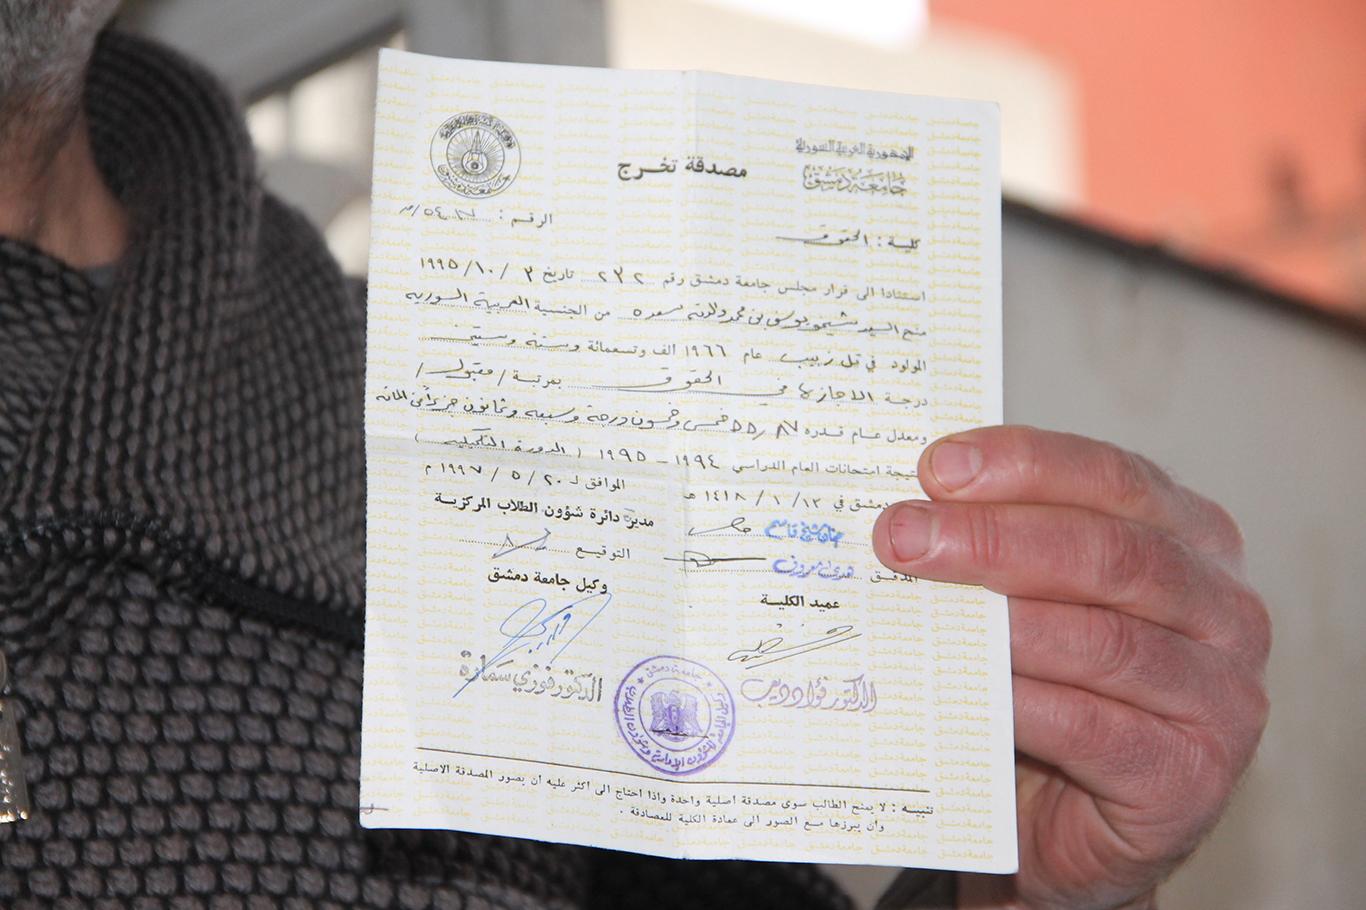 الجمهورية العربية السورية
جامعة دمشق
مصدقة تخرج
كلية : الحقوق
الرقم :
استنادا الى قرار مجلس جامعة دمشق رقم ٢٣٢ تاريخ ٣ / ١٠ / ١٩٩٥
منح السيد شيخو يوسف بن محمد والدته سعده من الجنسية العربية السورية
المولود في تل زبيب عام ١٩٦٦ الف وتسعمائة وستة وستين
درجة الاجازة في الحقوق بمرتبة / مقبول /
ومعدل عام قدره ٥٥,٨٧ خمس وخمسون درجة وسبعة وثمانون جزءاً في المائة
نتيجة امتحانات العام الدراسي ١٩٩٤ - ١٩٩٥ ( الدورة التكميلية )
دمشق في ١٣ / ١ / ١٤١٨ هـ الموافق لـ ٢٠ / ٥ / ١٩٩٧ م
مدير دائرة شؤون الطلاب المركزية
قاسم
التوقيع
المدقق هدى معروف
عميد الكلية
وكيل جامعة دمشق
الدكتور فؤاد ديب
الدكتور فوزي سمارة
جامعة دمشق
تنبيه : لا يمنح الطالب سوى مصدقة اصلية واحدة واذا احتاج الى اكثر عليه ان يصور المصدقة الاصلية
وان يبرزها مع الصور الى عمادة الكلية للمصادقة .